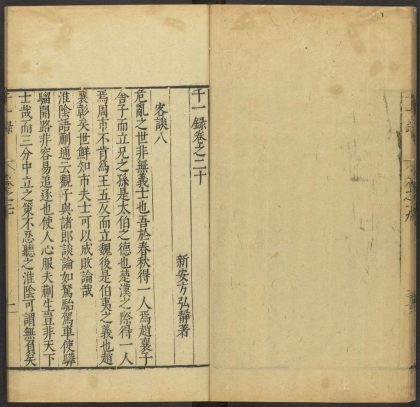 千一錄卷之二十
新安方弘靜著
客談八
危亂之世非無義士也吾於春秋得一人焉趙襄子
舍子而立兄之孫是太伯之德也楚漢之際得一人
焉周市不肯為王五反而立魏後是伯夷之義也趙
襄彰矣世鮮知市夫士可以成敗論哉
淮陰語蒯通云觀子與諸郎談論如駑駘駕車使驊
騮開路非容易追逐也使人心服夫蒯生豈非天下
士哉而三分中立之策不忍聽之淮陰可謂無負矣
千一錄
卷之二十
一